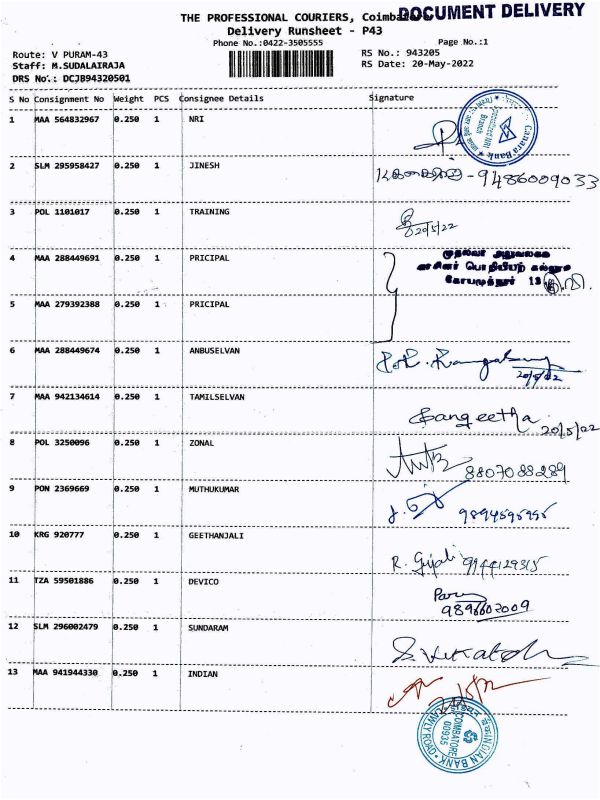 THE PROFESSIONAL COURIERS, Coimbatore
DOCUMENT DELIVERY
Delivery Runsheet - P43
Phone No.:0422-3505555
Page No.:1
Route: V PURAM-43
RS No.: 943205
Staff: M.SUDALAIRAJA
RS Date: 20-May-2022
DRS No.: DCJB94320501
S No Consignment No Weight PCS Consignee Details Signature
1 MAA 564832967 0.250 1 NRI
Canara Bank
Branch
2 SLM 295958427 0.250 1 JINESH
- 9486009033
3 POL 1101017 0.250 1 TRAINING
20/5/22
4 MAA 288449691 0.250 1 PRICIPAL
முதல்வர் அலுவலகம்
அரசினர் பொறியியற் கல்லூரி
கோயமுத்தூர் 13
5 MAA 279392388 0.250 1 PRICIPAL
6 MAA 288449674 0.250 1 ANBUSELVAN
7 MAA 942134614 0.250 1 TAMILSELVAN
Sangeetha
20/5/22
8 POL 3250096 0.250 1 ZONAL
8807088289
9 PON 2369669 0.250 1 MUTHUKUMAR
10 KRG 920777 0.250 1 GEETHANJALI
R. Gijali 9944129315
11 TZA 59501886 0.250 1 DEVICO
12 SLM 296002479 0.250 1 SUNDARAM
13 MAA 941944330 0.250 1 INDIAN
INDIAN BANK
LAWLY ROAD
COIMBATORE
00935